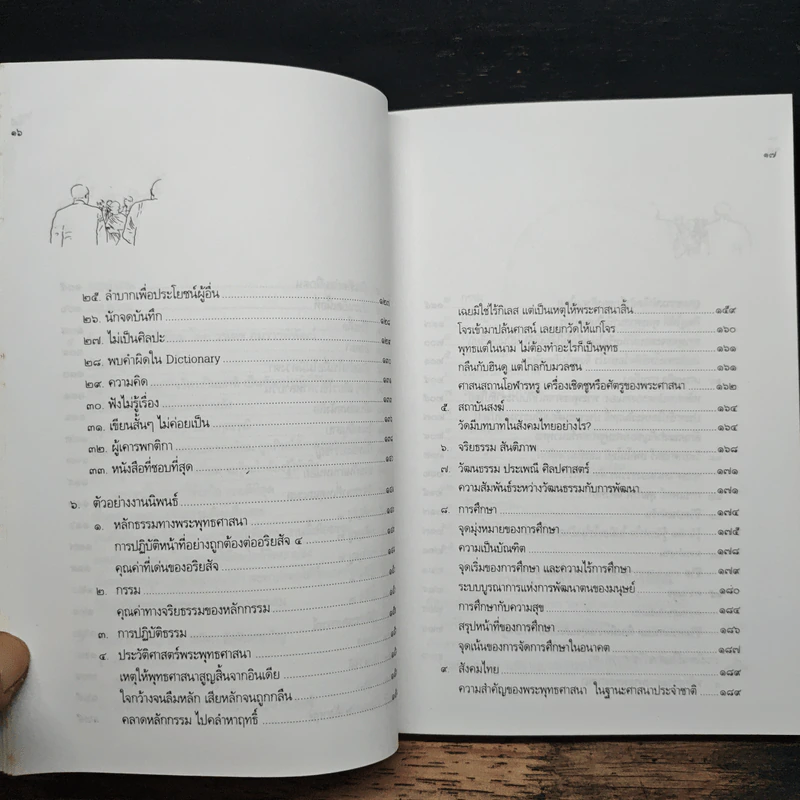 ๑๖
๒๕. ลำบากเพื่อประโยชน์ผู้อื่น
๒๖. นักจดบันทึก
๒๗. ไม่เป็นศิลปะ
๒๘. พบคำผิดใน Dictionary
๒๙. ความคิด
๓๐. ฟังไม่รู้เรื่อง
๓๑. เขียนสั้นๆ ไม่ค่อยเป็น
๓๒. ผู้เคารพกติกา
๓๓. หนังสือที่ชอบที่สุด
๖. ตัวอย่างงานนิพนธ์
๑. หลักธรรมทางพระพุทธศาสนา
การปฏิบัติหน้าที่อย่างถูกต้องต่ออริยสัจ ๔
คุณค่าที่เด่นของอริยสัจ
๒. กรรม
คุณค่าทางจริยธรรมของหลักกรรม
๓. การปฏิบัติธรรม
๔. ประวัติศาสตร์พระพุทธศาสนา
เหตุให้พุทธศาสนาสูญสิ้นจากอินเดีย
ใจกว้างจนลืมหลัก เสียหลักจนถูกกลืน
คลาดหลักกรรม ไปคลำหาฤทธิ์
๑๗
เฉยมิใช่ไร้กิเลส แต่เป็นเหตุให้พระศาสนาสิ้น ๑๕๙
โจรเข้ามาปล้นศาสน์ เลยยกวัดให้แก่โจร ๑๖๐
พุทธแต่ในนาม ไม่ต้องทำอะไรก็เป็นพุทธ ๑๖๑
กลืนกับฮินดู แต่ไกลกับมวลชน ๑๖๑
ศาสนสถานโอฬารหรู เครื่องเชิดชูหรือศัตรูของพระศาสนา ๑๖๒
๕. สถาบันสงฆ์ ๑๖๔
วัดมีบทบาทในสังคมไทยอย่างไร? ๑๖๔
๖. จริยธรรม สันติภาพ ๑๖๘
๗. วัฒนธรรม ประเพณี ศิลปศาสตร์ ๑๗๑
ความสัมพันธ์ระหว่างวัฒนธรรมกับการพัฒนา ๑๗๑
๘. การศึกษา ๑๗๔
จุดมุ่งหมายของการศึกษา ๑๗๕
ความเป็นบัณฑิต ๑๗๘
จุดเริ่มของการศึกษา และความไร้การศึกษา ๑๗๙
ระบบบูรณาการแห่งการพัฒนาตนของมนุษย์ ๑๘๐
การศึกษากับความสุข ๑๘๔
สรุปหน้าที่ของการศึกษา ๑๘๖
จุดเน้นของการจัดการศึกษาในอนาคต ๑๘๗
๙. สังคมไทย ๑๘๙
ความสำคัญของพระพุทธศาสนา ในฐานะศาสนาประจำชาติ ๑๘๙